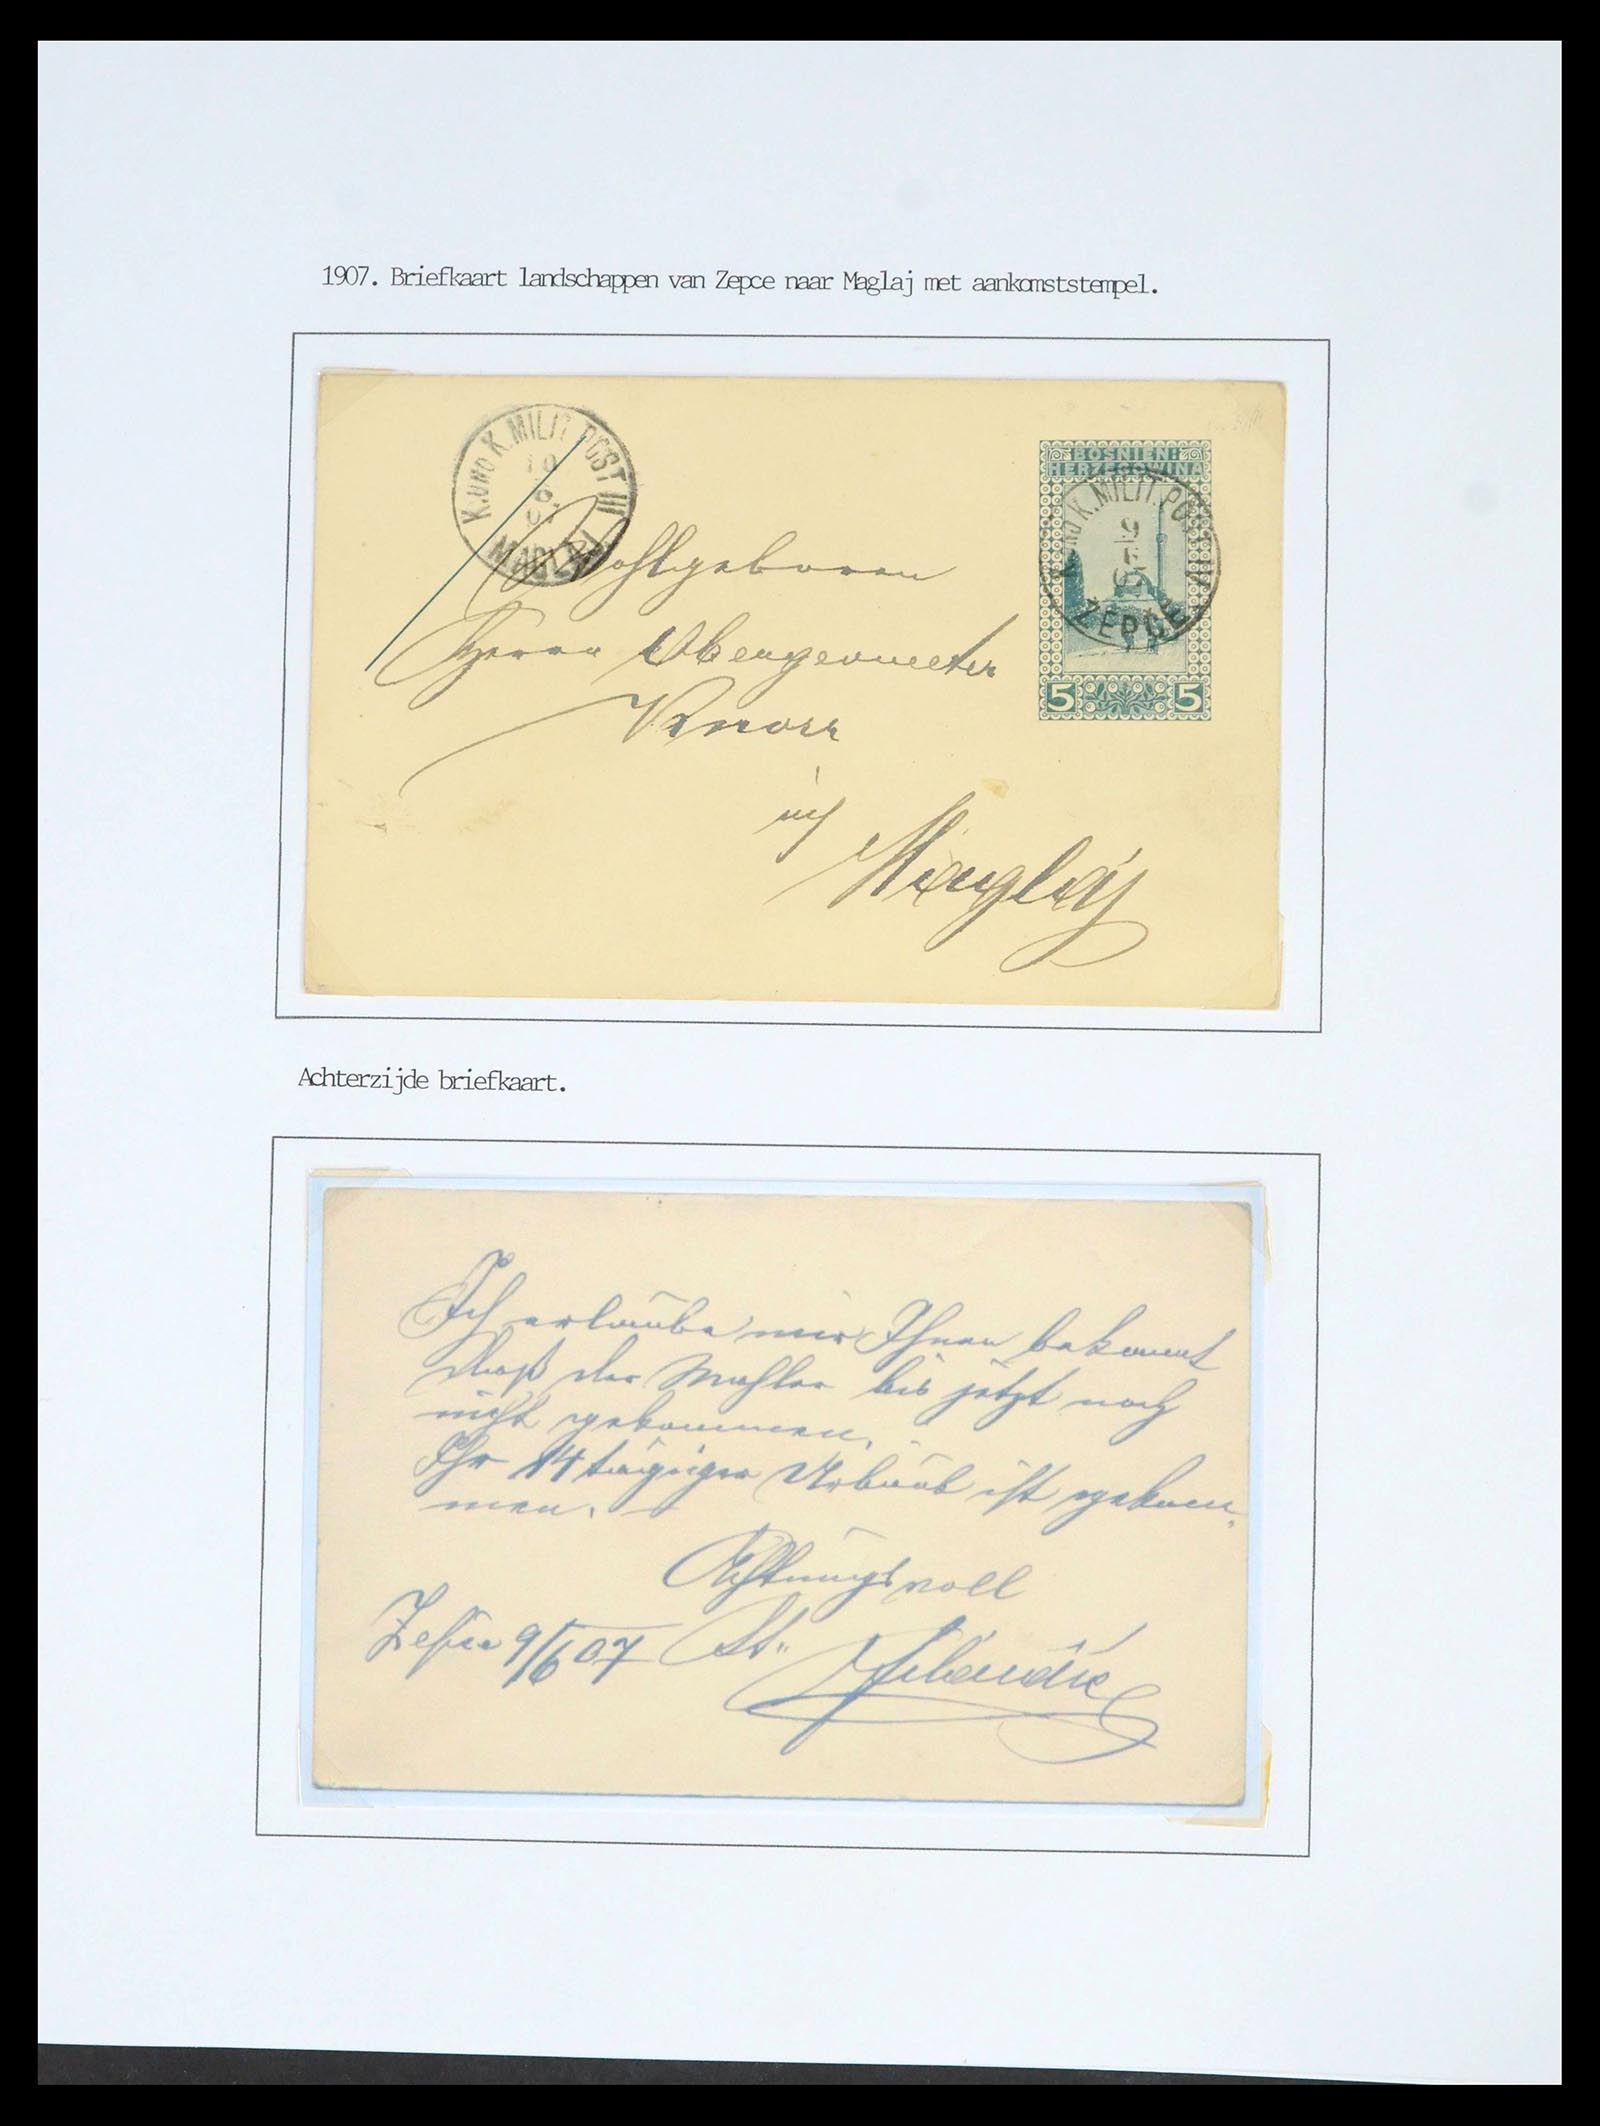 1907. Briefkaart landschappen van Zepce naar Maglaj met aankomststempel.
K. UND K. MILIT. POST III
10
6
07
MAGLAJ
BOSNIEN-
HERZEGOWINA
K. UND K. MILIT. POST
9
ZEPCE
5 5
Wohlgeboren
Herrn Obergeometer
Knorr
in
Maglaj
Achterzijde briefkaart.
Ich erlaube mir Ihnen bekannt
daß der Mahler bis jetzt noch
nicht gekommen.
Ihr 14 tägiger Urlaub ist gekom
men.
Achtungsvoll
Zepce 9/6 07 St.